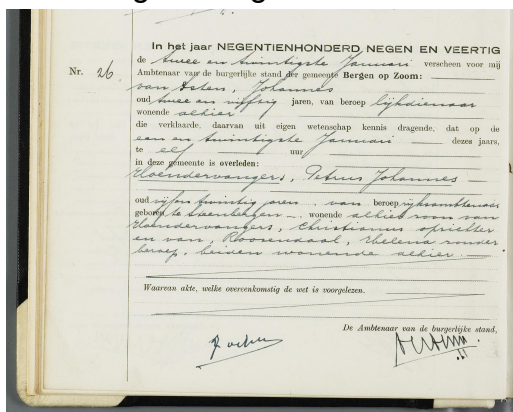 In het jaar NEGENTIENHONDERD NEGEN EN VEERTIG
de twee en twintigste Januari verscheen voor mij
Nr. 26. Ambtenaar van de burgerlijke stand der gemeente Bergen op Zoom:
van Asten, Johannes
oud twee en vijftig jaren, van beroep lijkdienaar
wonende alhier
die verklaarde, daarvan uit eigen wetenschap kennis dragende, dat op de
een en twintigste Januari dezes jaars,
te elf uur
in deze gemeente is overleden:
Hoendervangers, Petrus Johannes
oud vijf en twintig jaren, van beroep rijksambtenaar
geboren te Steenbergen wonende alhier zoon van
Hoendervangers, Christianus oprichter
en van Roosendaal, Helena zonder
beroep, beiden wonende alhier.
Waarvan akte, welke overeenkomstig de wet is voorgelezen.
De Ambtenaar van de burgerlijke stand,